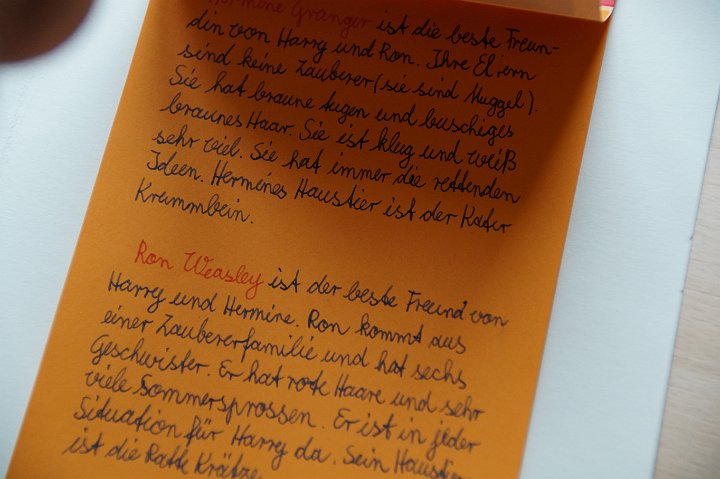 Hermine Granger ist die beste Freun-
din von Harry und Ron. Ihre Eltern
sind keine Zauberer (sie sind Muggel).
Sie hat braune Augen und buschiges
braunes Haar. Sie ist klug und weiß
sehr viel. Sie hat immer die rettenden
Ideen. Hermines Haustier ist der Kater
Krummbein.
Ron Weasley ist der beste Freund von
Harry und Hermine. Ron kommt aus
einer Zaubererfamilie und hat sechs
Geschwister. Er hat rote Haare und sehr
viele Sommersprossen. Er ist in jeder
Situation für Harry da. Sein Haustier
ist die Ratte Krätze.